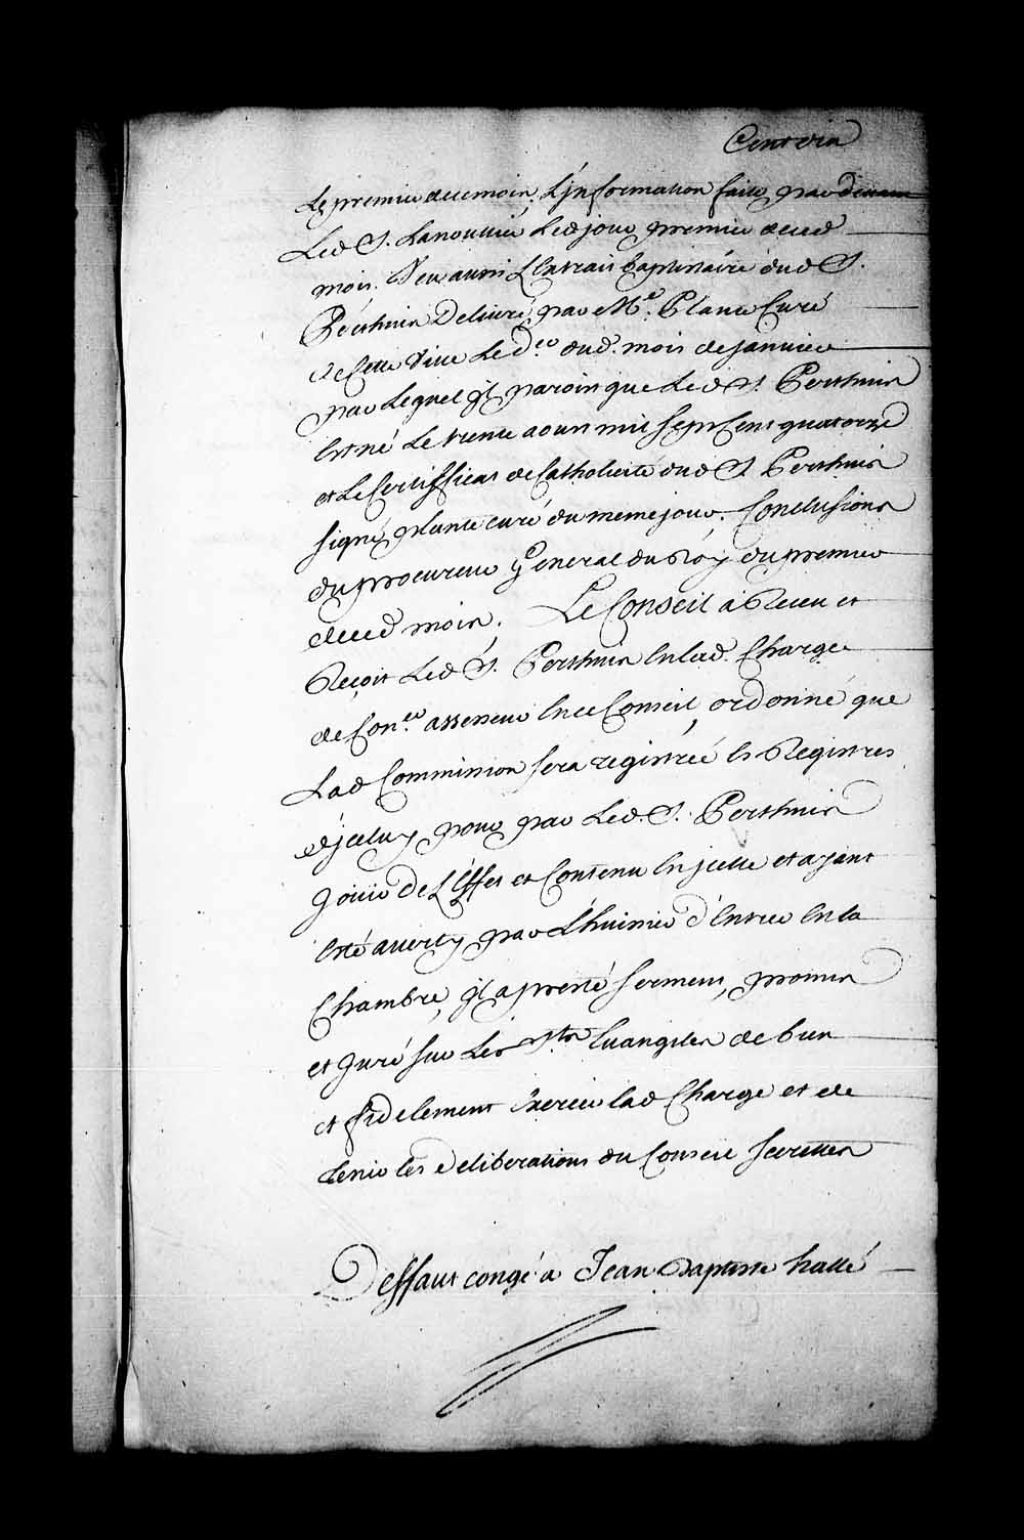 Cent dix
Le premier de ce mois, L'jnformation faite par devant
Led S. Lanoullier Led jour premier de ced
mois. Veu aussi L'Extrait baptistaire dud S.
Perthuis Delivré par Me. Plante Curé
de Cette Ville Le d.er dud. mois de janvier
par Lequel jl paroist que Led S. Perthuis
Est né Le trente aoust mil sept Cent quatorze
et Le Certifficat de Catholicité dud S. Perthuis
signé plante curé du meme jour. Conclusions
du procureur General du Roy du premier
de ced mois. Le Conseil a Receu et
Reçoit Led S. Perthuis En lad. Charge
de Con.er assesseur En ce Conseil, ordonné que
Lad Commission sera registrée Es Registres
d'jceluy pour par Led. S. Perthuis
joüir de L'Effet et Contenu En jcelle et ayant
Esté averty par L'huissier d'Entrer En la
Chambre, jl a presté serment, promis
et juré sur Les Sts Evangiles de bien
et fidelement Exercer lad Charge et de
tenir les deliberations du Conseil secrettes
Deffaut congé a Jean Baptiste hallé